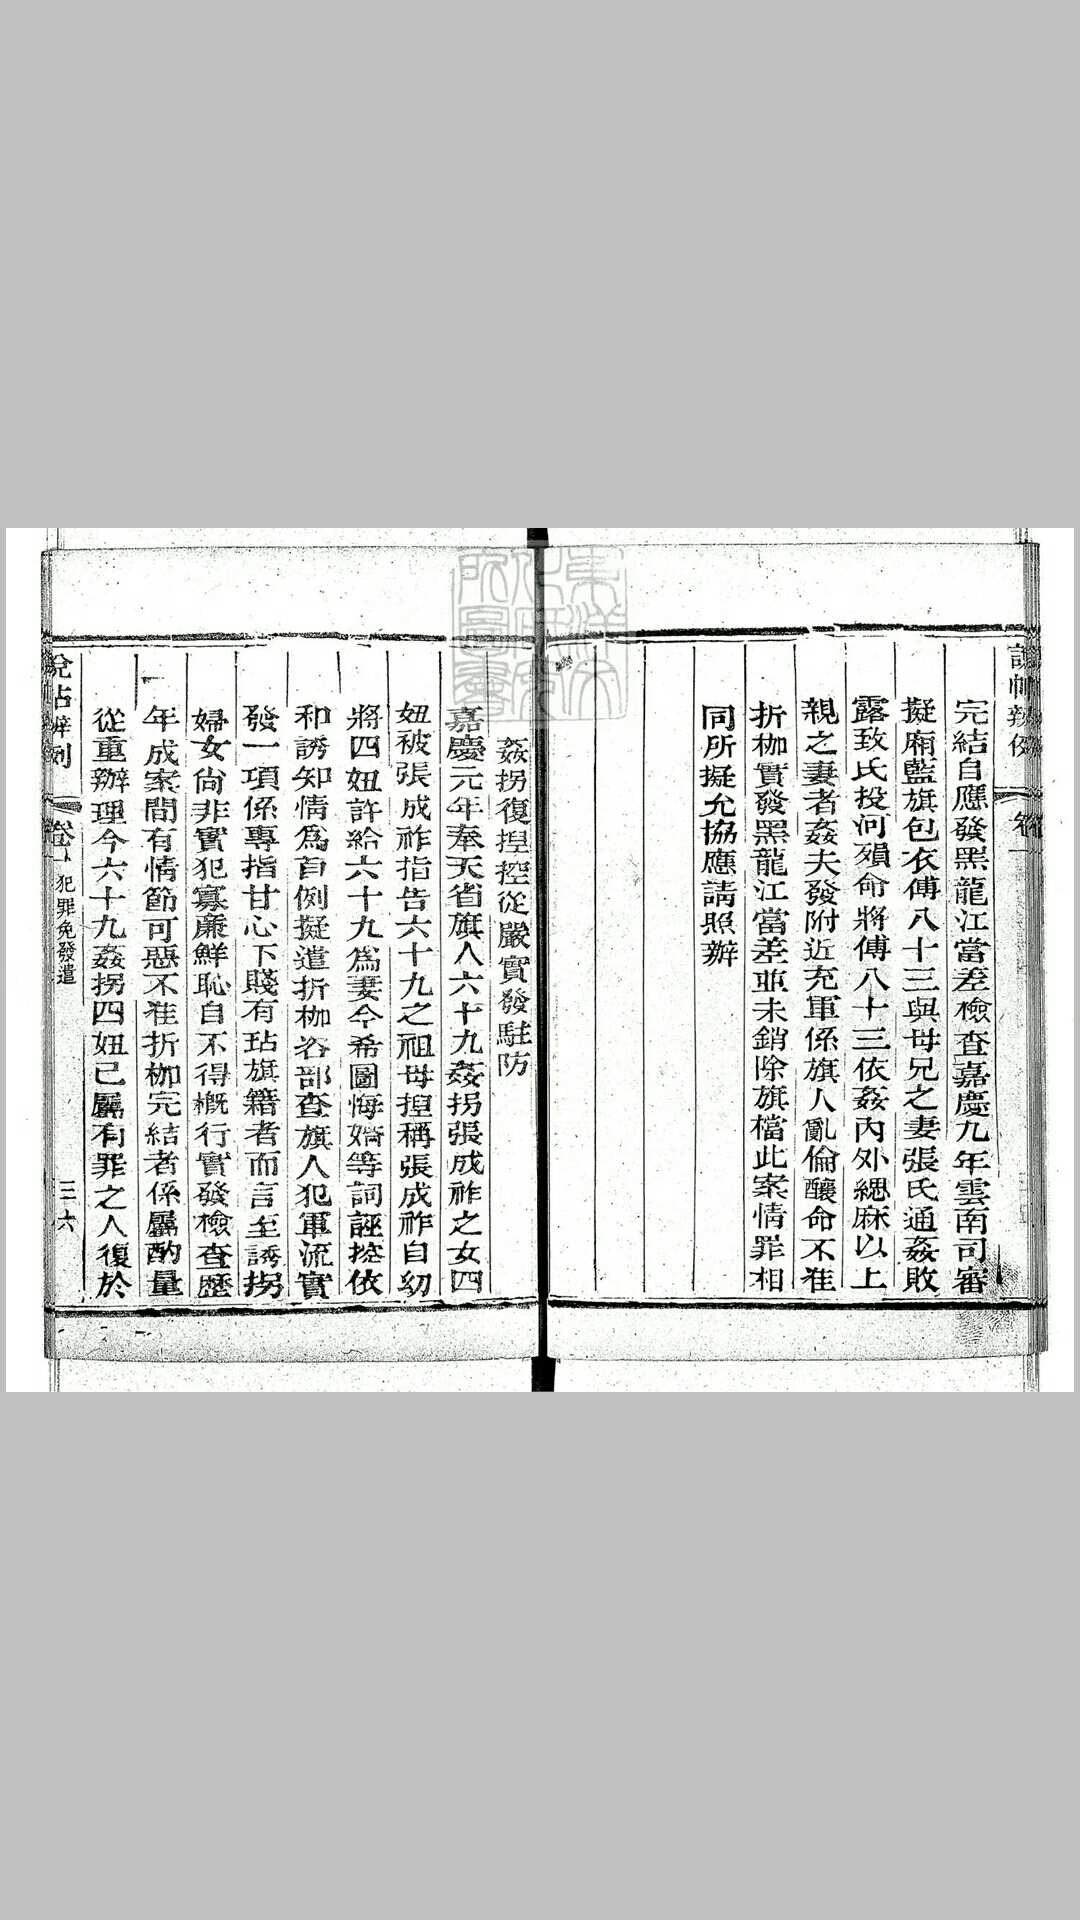 完結自應發黑龍江當差檢查嘉慶九年雲南司審
擬廂藍旗包衣傅八十三與母兄之妻張氏通姦敗
露致氏投河殞命將傅八十三依姦內外緦麻以上
親之妻者姦夫發附近充軍係旗人亂倫釀命不准
折枷實發黑龍江當差並未銷除旗檔此案情罪相
同所擬允協應請照辦
姦拐復揑控從嚴實發駐防
嘉慶元年奉天省旗人六十九姦拐張成祚之女四
妞被張成祚指告六十九之祖母揑稱張成祚自幼
將四妞許給六十九爲妻今希圖悔婚等詞誣控依
和誘知情爲首例擬遣折枷咨部查旗人犯軍流實
發一項係專指甘心下賤有玷旗籍者而言至誘拐
婦女尙非實犯寡廉鮮恥自不得槪行實發檢查歷
年成案間有情節可惡不准折枷完結者係屬酌量
從重辦理今六十九姦拐四妞已屬有罪之人復於
說帖辨例 卷一 犯罪免發遣 三六